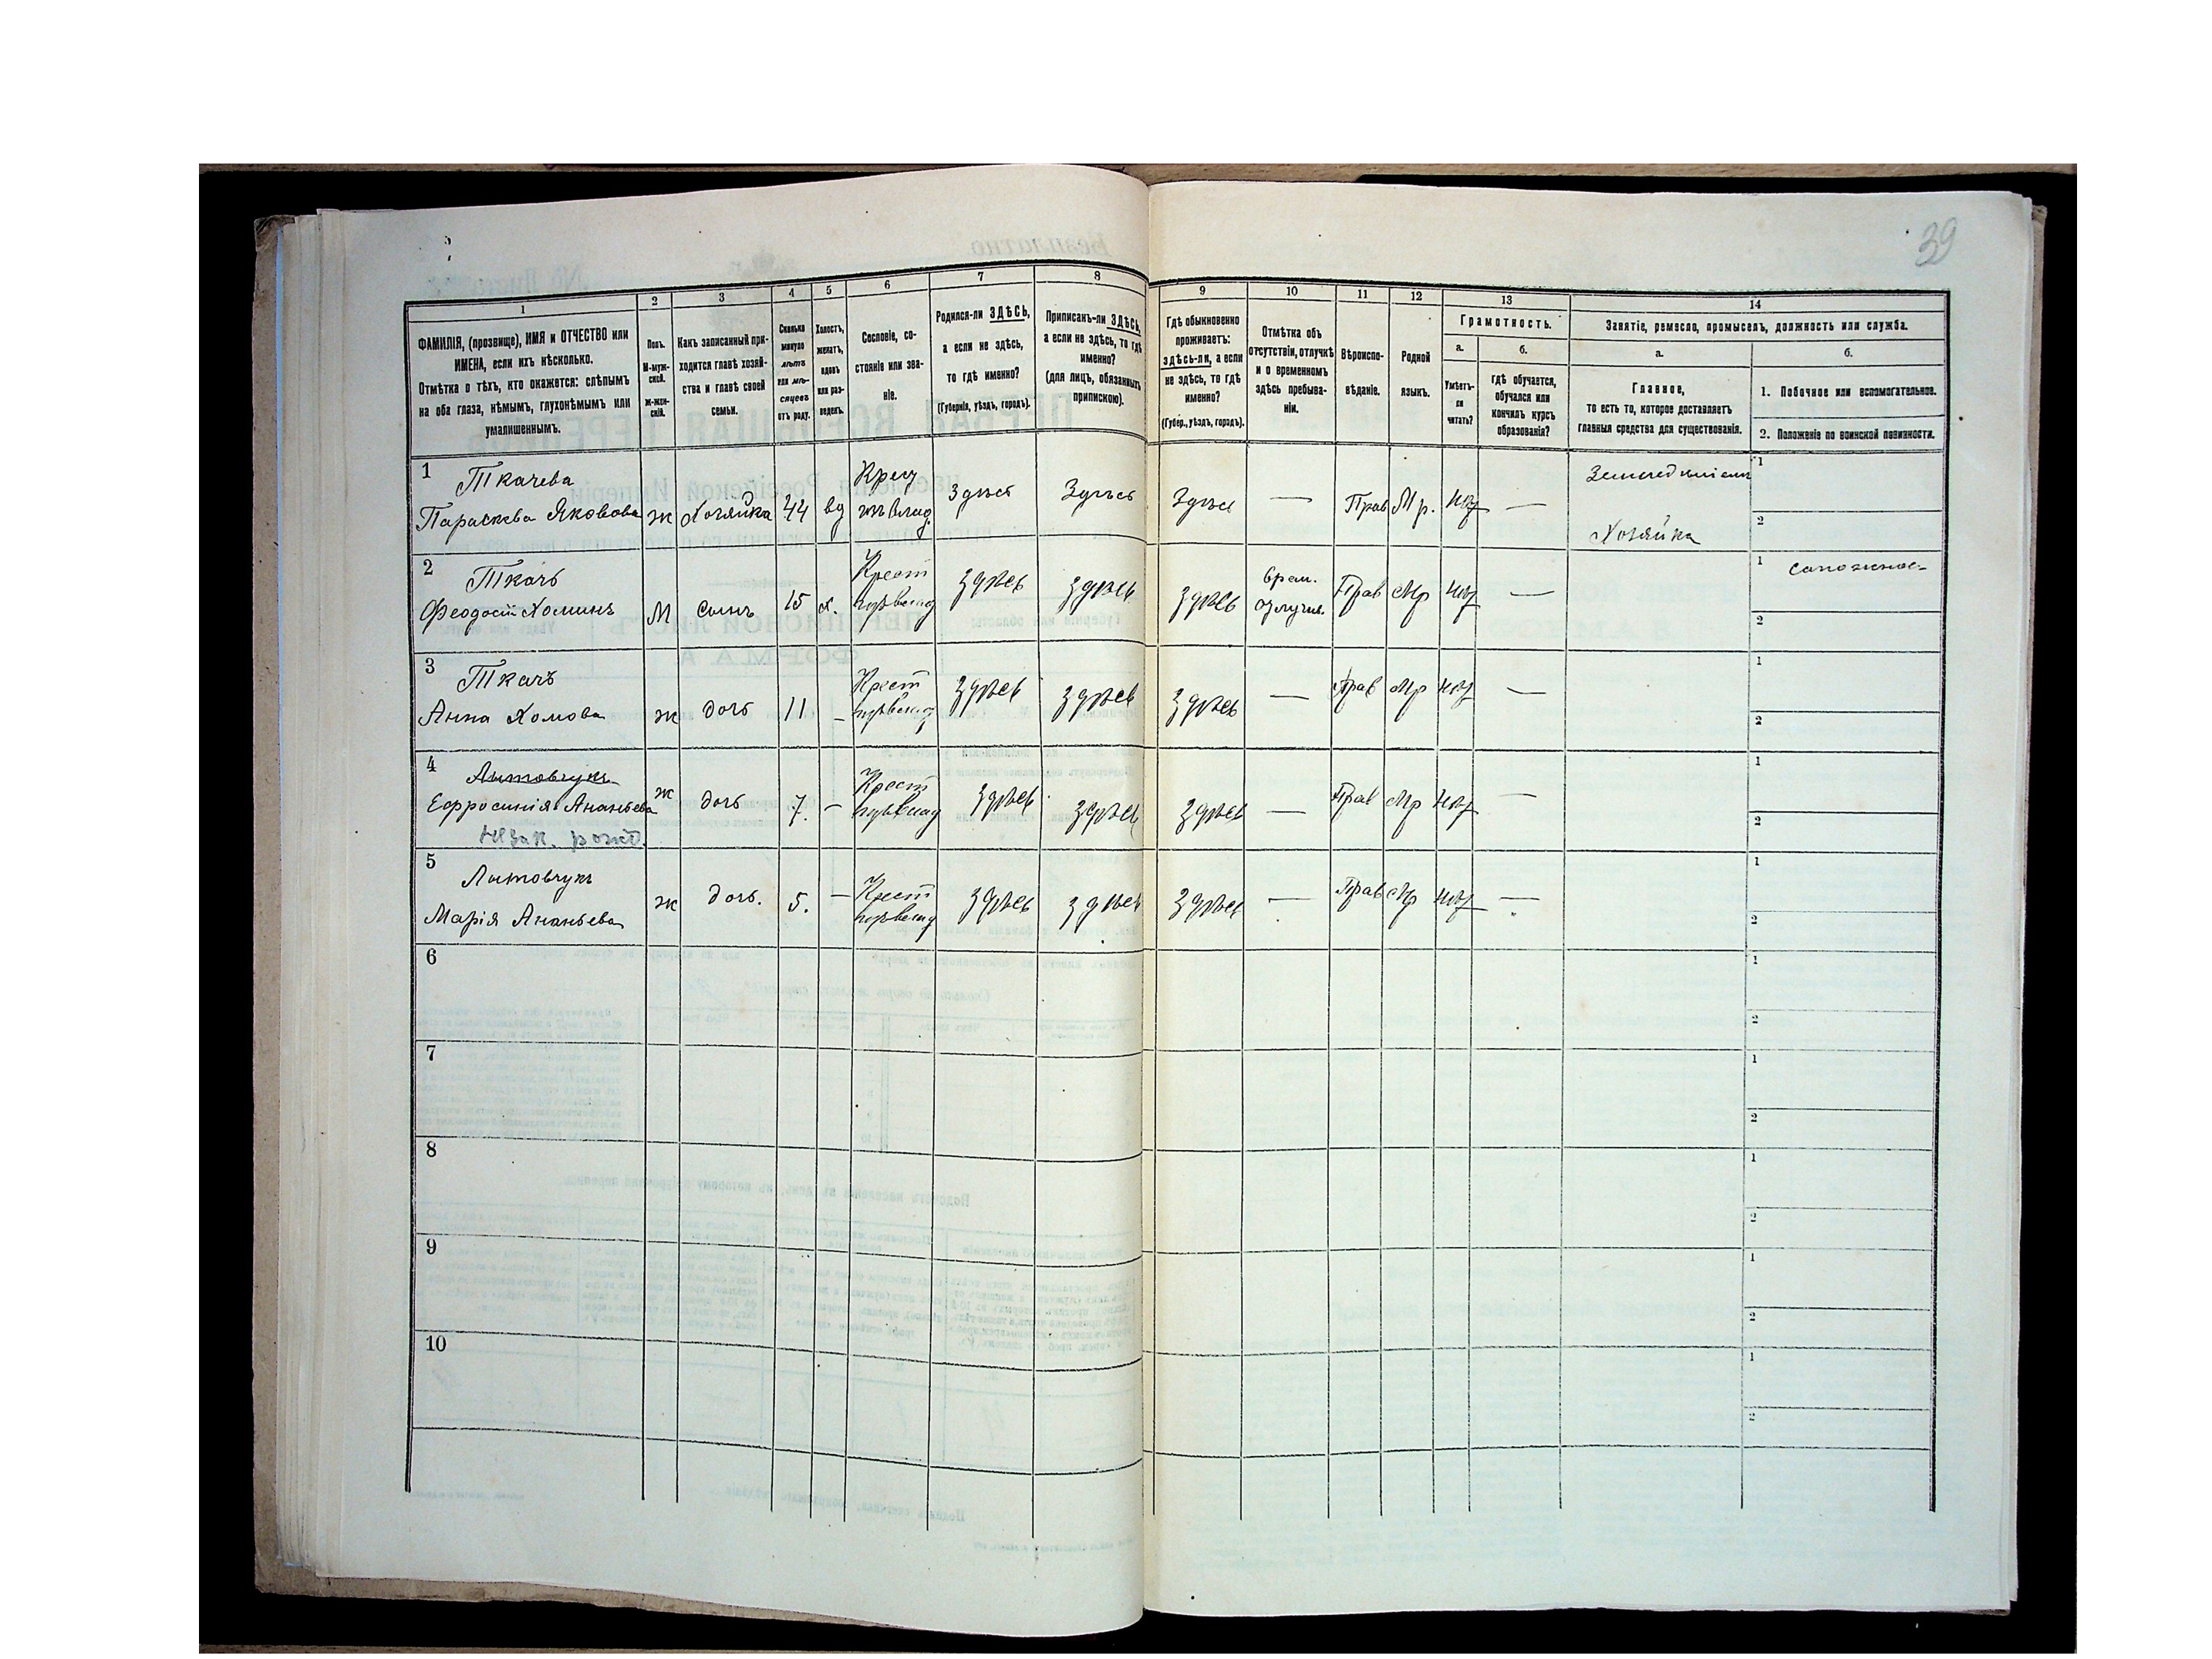 39
1 2 3 4 5 6 7 8 9 10 11 12 13 14
ФАМИЛІЯ, (прозвище), ИМЯ и ОТЧЕСТВО или
ИМЕНА, если ихъ нѣсколько.
Отмѣтка о тѣхъ, кто окажется: слѣпымъ
на оба глаза, нѣмымъ, глухонѣмымъ или
умалишеннымъ.
Полъ.
М-муж-
ской.
ж-жен-
скій.
Какъ записанный при-
ходится главѣ хозяй-
ства и главѣ своей
семьи.
Сколько
минуло
лѣтъ
или мѣ-
сяцевъ
отъ роду.
Холостъ,
женатъ,
вдовъ
или раз-
веденъ.
Сословіе, со-
стояніе или зва-
ніе.
Родился-ли ЗДѢСЬ,
а если не здѣсь,
то гдѣ именно?
(Губернія, уѣздъ, городъ).
Приписанъ-ли ЗДѢСЬ,
а если не здѣсь, то гдѣ
именно?
(для лицъ, обязанныхъ
припискою).
Гдѣ обыкновенно
проживаетъ:
здѣсь-ли, а если
не здѣсь, то гдѣ
именно?
(Губер., уѣздъ, городъ).
Отмѣтка объ
отсутствіи, отлучкѣ
и о временномъ
здѣсь пребыва-
ніи.
Вѣроиспо-
вѣданіе.
Родной
языкъ.
Грамотность.
а.
Умѣетъ-
ли
читать?
б.
гдѣ обучается,
обучался или
кончилъ курсъ
образованія?
Занятіе, ремесло, промыселъ, должность или служба.
а.
Главное,
то есть то, которое доставляетъ
главныя средства для существованія.
б.
1. Побочное или вспомогательное.
2. Положеніе по воинской повинности.
1 Ткачева
Параскева Яковова ж Хозяйка 44 вд Здѣсь Здѣсь Здѣсь — Прав Мр. нѣт —
Хозяйка
1
2
2 Ткачъ
Феодосій Хоминъ М сынъ 15 х. Крест здѣсь здѣсь здѣсь врем. Прав Мр нѣт —
1
2
3 Ткачъ
Анна Хомова ж дочь 11 – Крест здѣсь здѣсь здѣсь — Прав Мр нѣт —
1
2
4 Литовчукъ
Ефросинія Ананьева ж дочь 7. – Крест здѣсь здѣсь здѣсь — Прав Мр нѣт —
незак. рожд.
1
2
5 Литовчукъ
Марія Ананьева ж дочь. 5. — Крест здѣсь здѣсь здѣсь — Прав Мр нѣт —
1
2
6
1
2
7
1
2
8
1
2
9
1
2
10
1
2